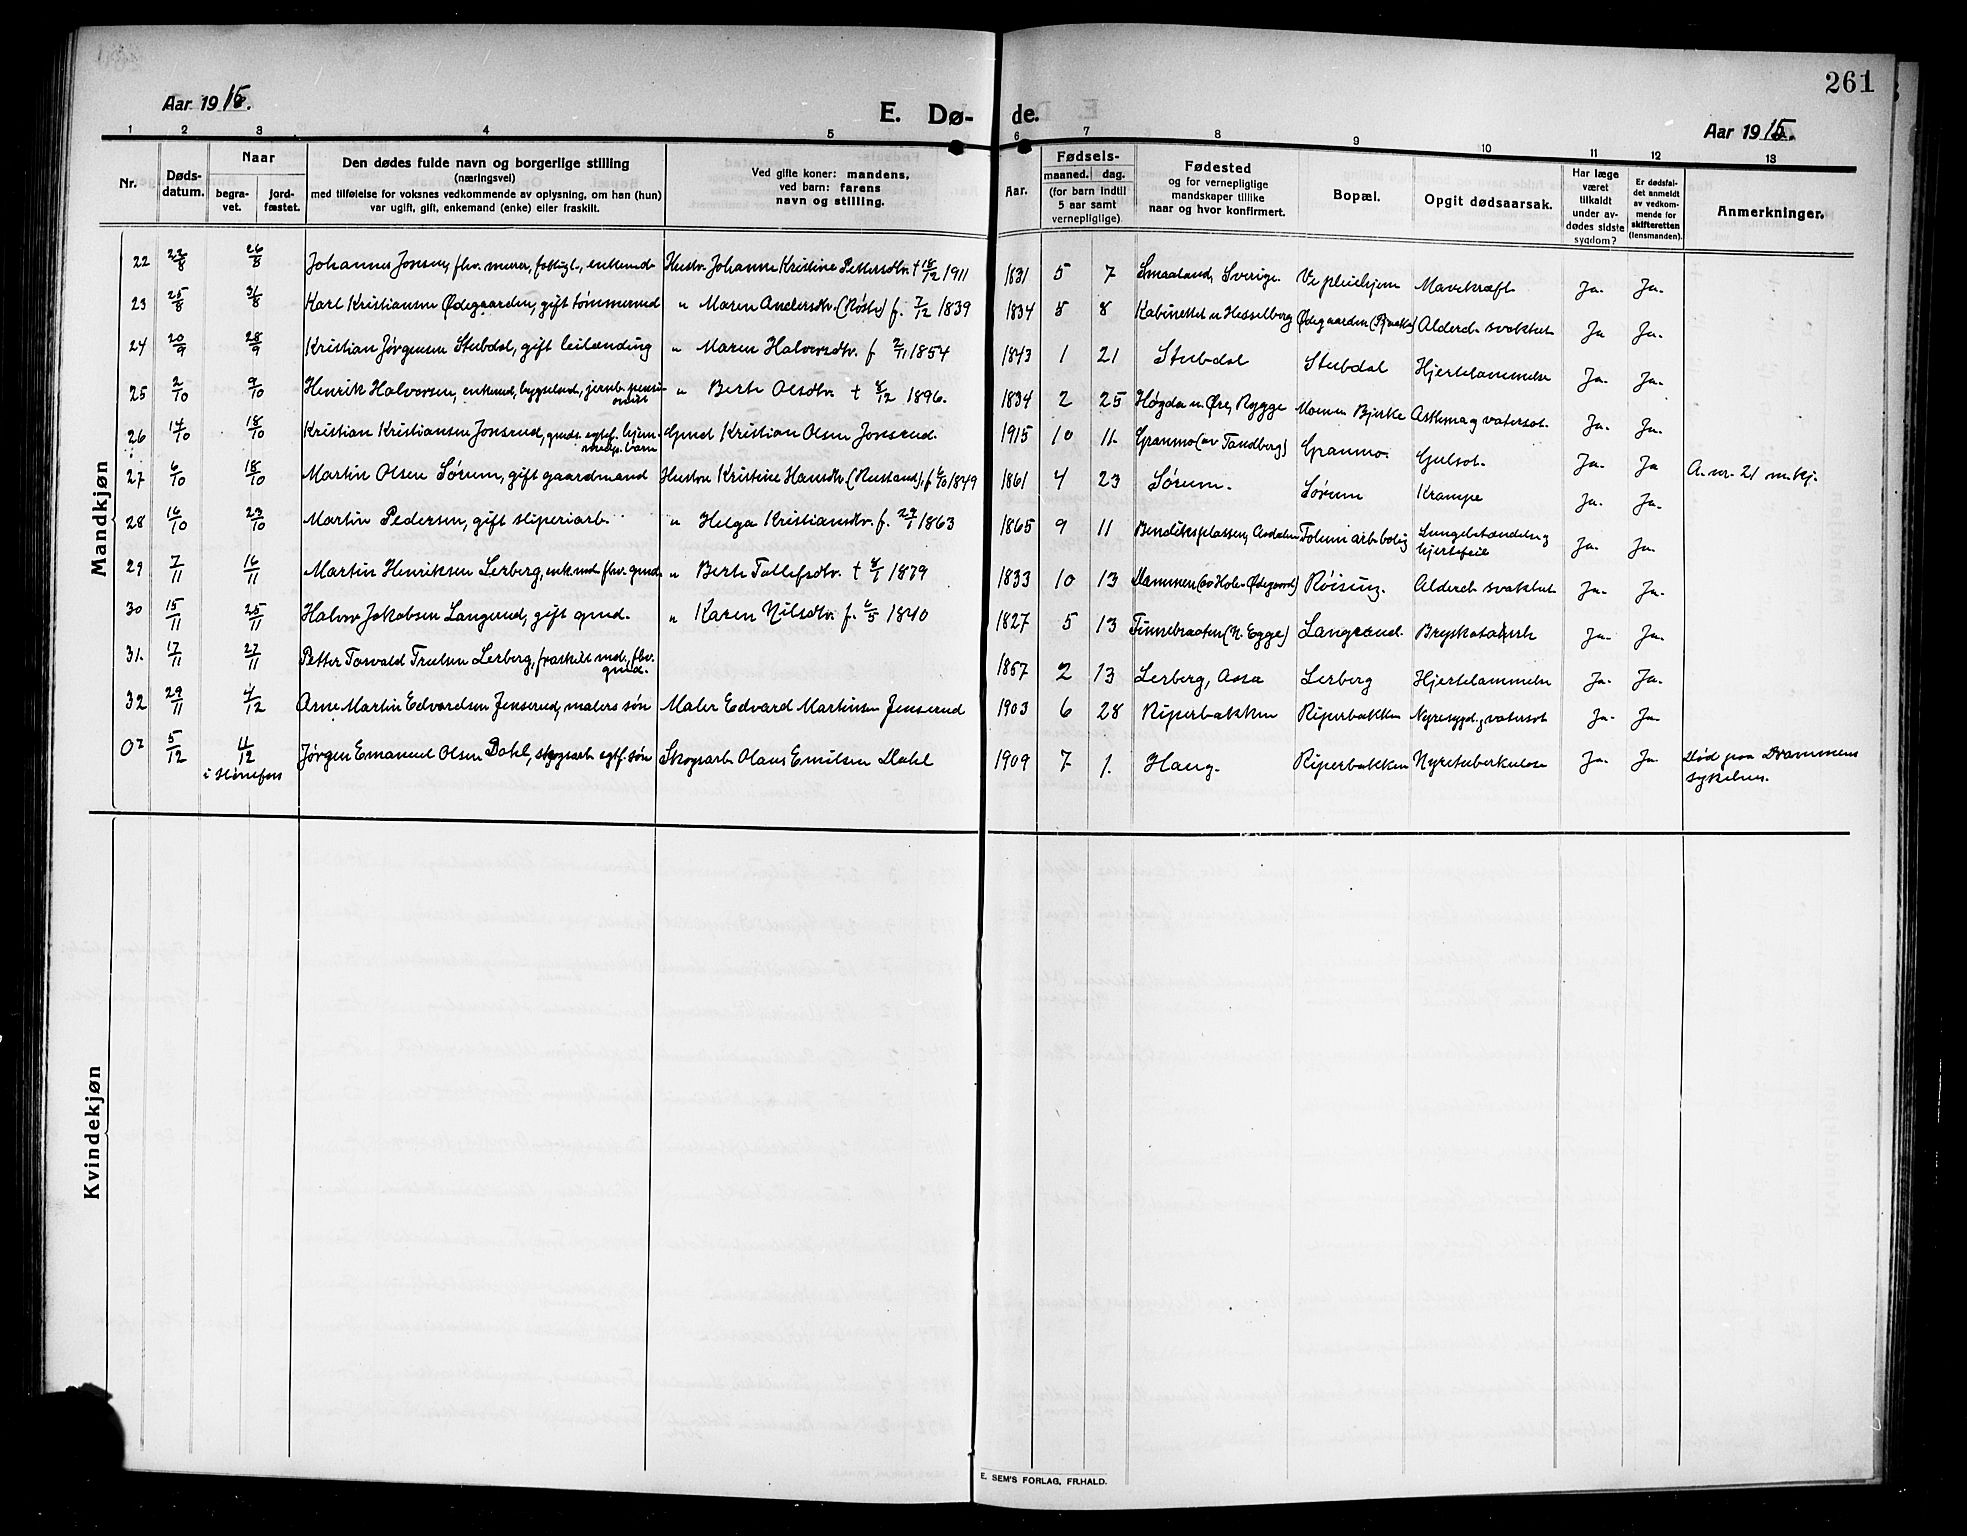 261
Aar 1915.
E. Dø- de.
Aar 1915.
1 2 3 4 5 6 7 8 9 10 11 12 13
Nr.
Døds-
datum.
Naar
begra-
vet.
jord-
fæstet.
Den dødes fulde navn og borgerlige stilling
(næringsvei)
med tilføielse for voksnes vedkommende av oplysning, om han (hun)
var ugift, gift, enkemand (enke) eller fraskilt.
Ved gifte koner: mandens,
ved barn: farens
navn og stilling.
Aar.
Fødsels-
maaned. dag.
(for barn indtil
5 aar samt
vernepligtige)
Fødested
og for vernepligtige
mandskaper tillike
naar og hvor konfirmert.
Bopæl.
Opgit dødsaarsak.
Har læge
været
tilkaldt
under av-
dødes sidste
sygdom?
Er dødsfal-
det anmeldt
av vedkom-
mende for
skifteretten
(lensmanden).
Anmerkninger.
Mandkjøn
22 22/8 26/8 Johannes Jonsen, fhv. murer, enkemd. Hustr. Johanne Kristine Pettersdtr. † 18/12 1911 1831 5 7 Smaaland, Sverige Ve pleiehjem Mavekræft Ja. Ja.
23 25/8 31/8 Karl Kristiansen Ødegaarden, gift tømmermd " Maren Andersdtr. (Røste) f. 7/12 1839 1834 8 8 Kabinettet u. Hesselberg Ødegaarden Alderd. svakhet Ja Ja.
24 20/9 28/9 Kristian Jørgensen Stubdal, gift leilænding " Maren Halvorsdtr. f 2/11 1854 1843 1 21 Stubdal Stubdal Hjertelammelse Ja. Ja.
25 2/10 9/10 Henrik Halvorsen, enkemd, jernb. pensi-
onist " Berte Olsdtr. † 8/12 1896. 1834 2 25 Høgda u. Øre, Rygge Moen Bjerke Astma og vatersot. Ja. Ja.
26 14/10 18/10 Kristian Kristiansen Jonsrud, gmds. egtef. hjem-
medp. barn Gmd Kristian Olsen Jonsrud. 1915 10 11. Granmo (av Tandberg) Granmo. Gulsot. Ja. Ja
27 6/10 18/10 Martin Olsen Sørum, gift gaardmand Hustru Kristine Hansdtr. (Rustand). f 6/10 1849 1861 4 23 Sørum. Sørum Krampe Ja. Ja. A. nr. 21 m.kj.
28 16/10 23/10 Martin Pedersen, gift sliperiarb. " Helga Kristiansdtr. f. 29/1 1863 1865 9 11 Bendiksplassen, Aadalen Tolerud arb. bolig Lungebetændelse og
hjertefeil Ja. Ja.
29 7/11 16/11 Martin Henriksen Lerberg, enkemd. fhv. gmd. " Berte Tollefsdtr. † 8/1 1879 1833 10 13 Dammen (av Hole-Ødegaard) Røising. Alderd. svakhet Ja. Ja.
30 15/11 25/11 Halvor Jakobsen Langrud, gift gmd. " Karen Nilsdtr. f. 6/5 1840 1827 5 13 Finnebraaten (N. Egge) Langrud. Brystkatarrh Ja. Ja.
31. 17/11 27/11 Petter Torvald Trulsen Lerberg, fraskilt md., fhv.
gmd. 1857 2 13 Lerberg, Aasa Lerberg Hjertelammelse Ja. Ja.
32 29/11 4/12 Arne Martin Edvardsen Jenserud, malers søn Maler Edvard Martinsen Jenserud 1903 6 28 Riperbakken Riperbakken Nyresygd. g vatersot Ja. Ja.
02 5/12 11/12 Jørgen Emanuel Olsen Dahl, skogsarb. egtf. søn Skogsarb. Olaus Emilsen Dahl 1909 7. 1. Haug. Riperbakken Nyretuberkulose Ja. Ja. Død paa Drammens
i Hønefos sykehus.
Kvindekjøn
E. SEM'S FORLAG, FR.HALD.